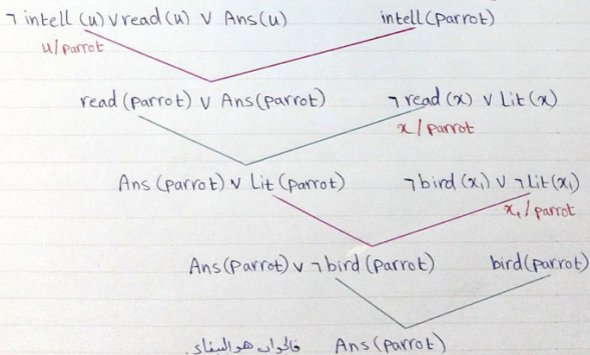 ¬ intell (u) ∨ read (u) ∨ Ans(u) intell(parrot)
u/parrot
read (parrot) ∨ Ans(parrot) ¬ read (x) ∨ Lit(x)
x/parrot
Ans (parrot) ∨ Lit (parrot) ¬ bird (x₁) ∨ ¬ Lit(x₁)
x₁/parrot
Ans(parrot) ∨ ¬ bird (parrot) bird(parrot)
فالجواب هو الببغاء. Ans(parrot)